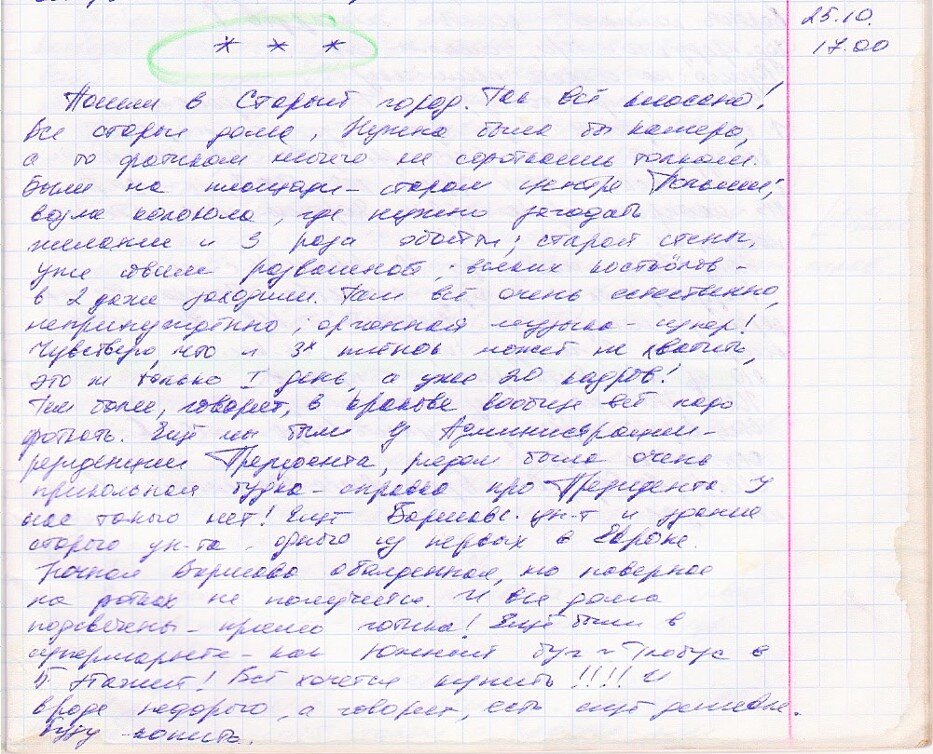 25.10.
17.00
* * *
Пошли в Старый город. Так всё классно!
Все старые дома, Нужна была бы камера,
а то фотиком ничего не сфоткаешь толком.
Были на площади - старом центре Польши;
возле колокола, где нужно загадать
желание и 3 раза обойти; старой стены,
уже совсем ; всяких костёлов -
в 2 даже заходили. Там всё очень естественно,
непринуждённо; органная музыка - супер!
Чувствую, что и 3х плёнок может не хватить,
это ж только I день, а уже 20 кадров!
Тем более, говорят, в Кракове вообще всё надо
фоткать. Ещё мы были у Администрации -
резиденции Президента, рядом была очень
прикольная будка - справка про Президента. У
нас такого нет! Ещё Варшавс. ун-т и здание
старого ун-та - одного из первых в Европе.
Ночная Варшава обалденная, но наверное
на фотках не получится. И все дома
подсвечены - прямо готика! Ещё были в
супермаркете - как Южный Буг и Глобус в
5 этажей! Всё хочется купить!!!! И
вроде недорого, а говорят, есть ещё дешевле.
Буду копить.